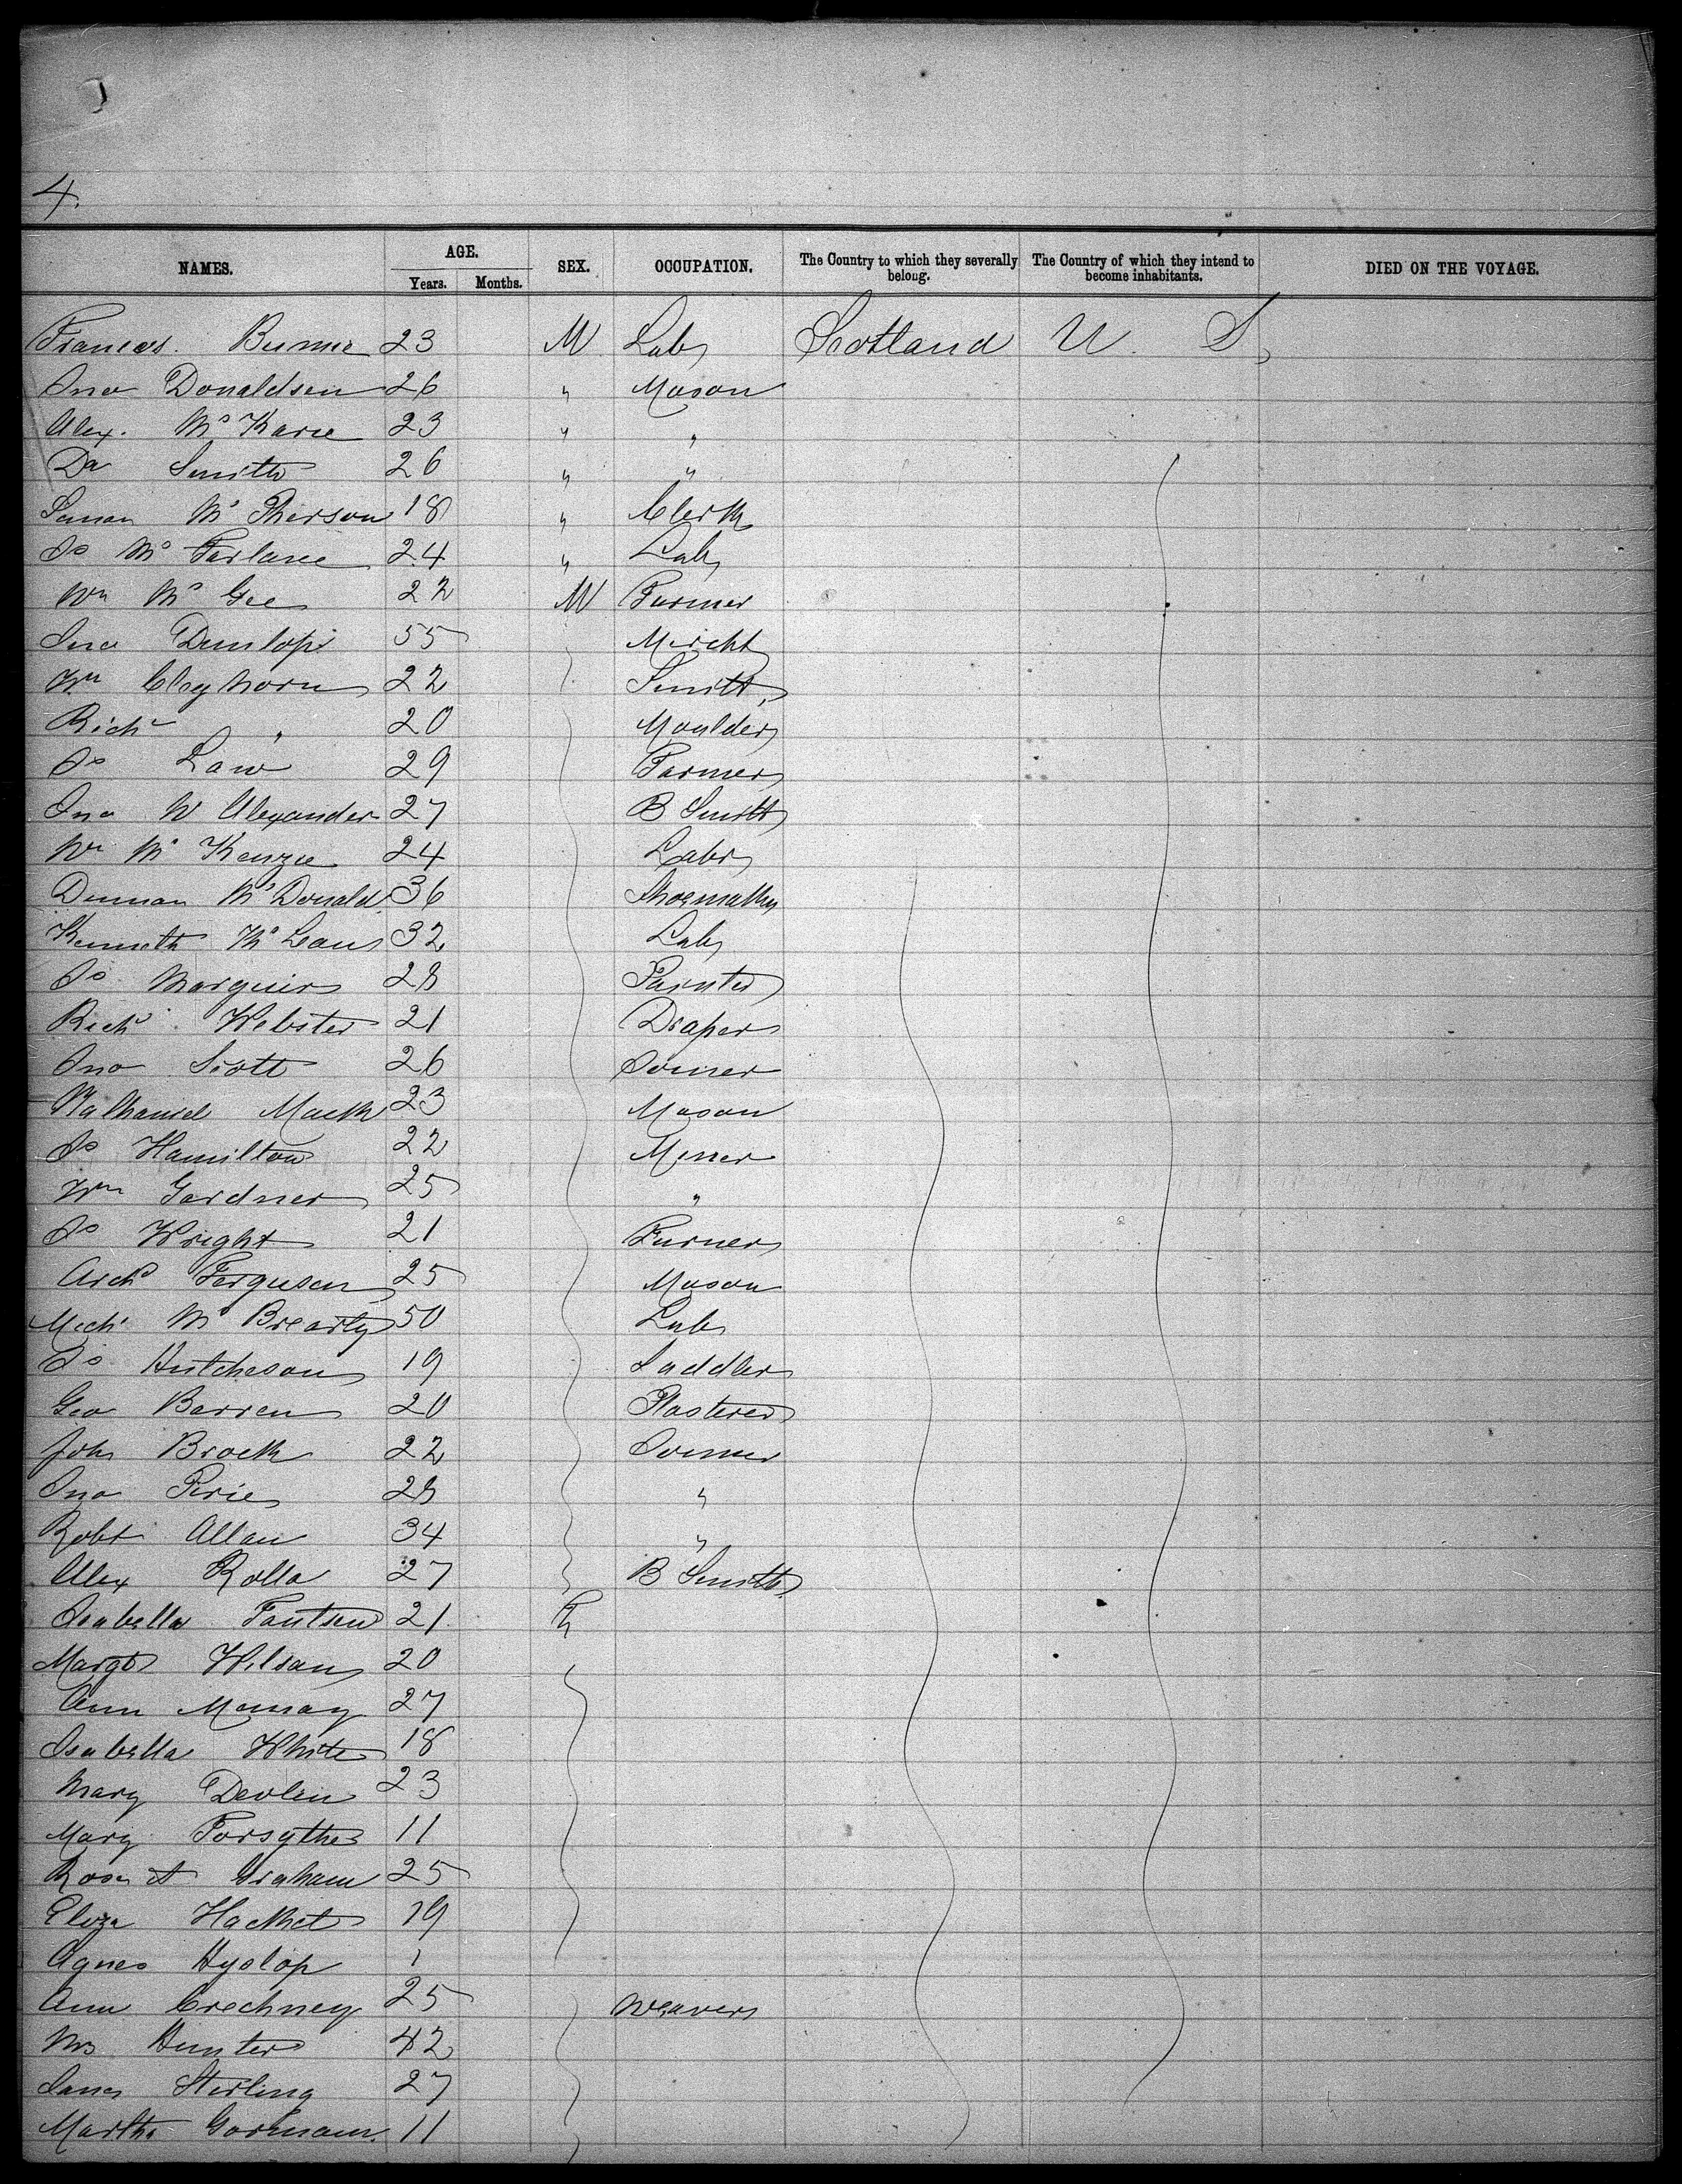 4.
NAMES. AGE. SEX. OCCUPATION. The Country to which they severally belong. The Country of which they intend to become inhabitants. DIED ON THE VOYAGE.
Years. Months.
Frances Burnie 23 M Lab Scotland U. S
Jno Donaldson 26 " Mason
Alex. Mc Karie 23 " "
Da Smith 26 " "
Mc Pherson 18 " Clerk
Js Mc Farlane 24 " Lab
Wm Mc Gee 22 M Farmer
Jno Dunlop 55 Mercht
Wm Cleghorn 22 Smith
Richd " 20 Moulder
Js Law 29 Farmer
Jno W Alexander 27 B Smith
Wm Mc Kenzie 24 Labr
Duncan Mc Donald 36 Shoemaker
Kenneth Mc Lean 32 Lab
Js Marquis 28 Painter
Richd Webster 21 Draper
Jno Scott 26 Joiner
Nathaniel Mack 23 Mason
Js Hamilton 22 Miner
Wm Gardner 25 "
Js Wright 21
Archd Ferguson 25 Mason
Michl Mc Brearty 50 Lab
Js Hutcheson 19 Saddler
Geo Barren 20 Plasterer
John Brock 22 Joiner
Jno Pirie 28 "
Robt Allan 34 "
Alex Rolla 27 B Smith
Isabella 21 F
Margt Wilson 20
Ann 27
Isabella White 18
Mary Devlin 23
Mary Forsythe 11
Rose A Graham 25
Eliza Hacket 19
Agnes Hyslop 1
Ann Crechney 25 Weaver
Mrs Hunter 42
Janes Stirling 27
Martha Gorman 11